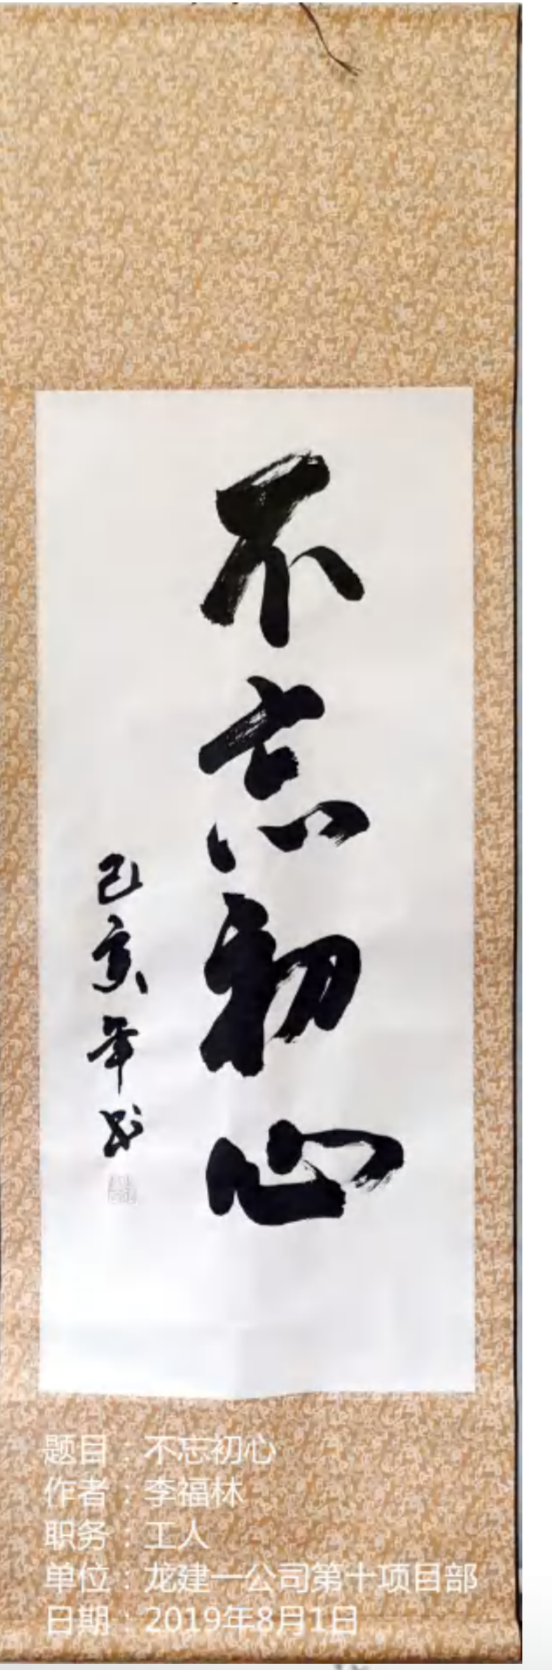 不忘初心
己亥年书
题目：不忘初心
作者：李福林
职务：工人
单位：龙建一公司第十项目部
日期：2019年8月1日